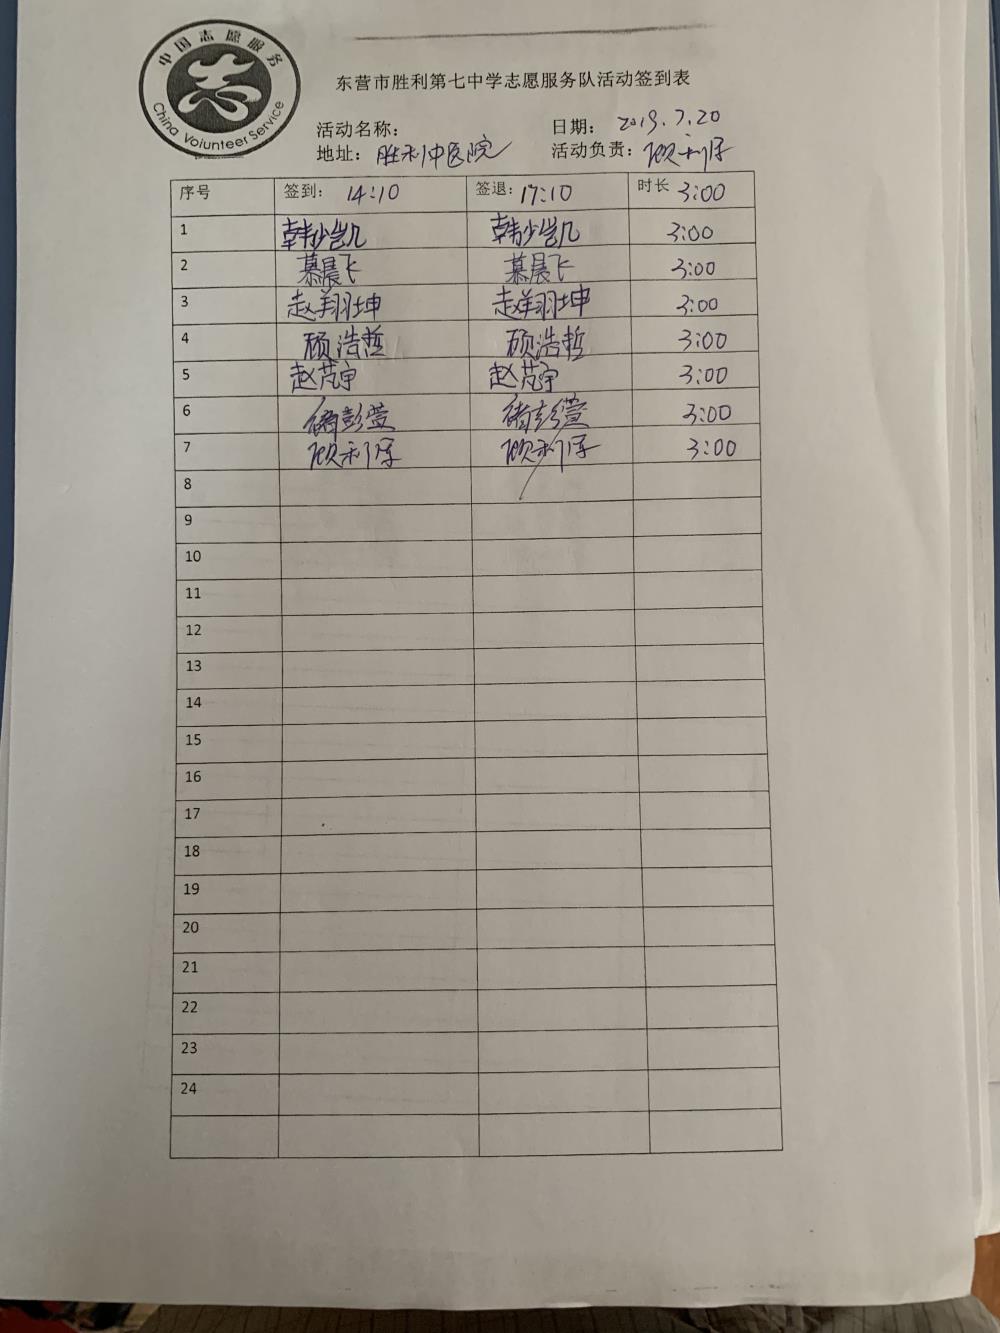 中国志愿服务
China Volunteer Service
东营市胜利第七中学志愿服务队活动签到表
活动名称： 日期： 2019.7.20
地址： 胜利中医院 活动负责： 顾利厚
序号 签到： 14:10 签退： 17:10 时长 3:00
1 韩少凯 韩少凯 3:00
2 慕晨飞 慕晨飞 3:00
3 赵翔坤 赵翔坤 3:00
4 顾浩哲 顾浩哲 3:00
5 赵芃宇 赵芃宇 3:00
6 彭萱 彭萱 3:00
7 顾利厚 顾利厚 3:00
8
9
10
11
12
13
14
15
16
17
18
19
20
21
22
23
24